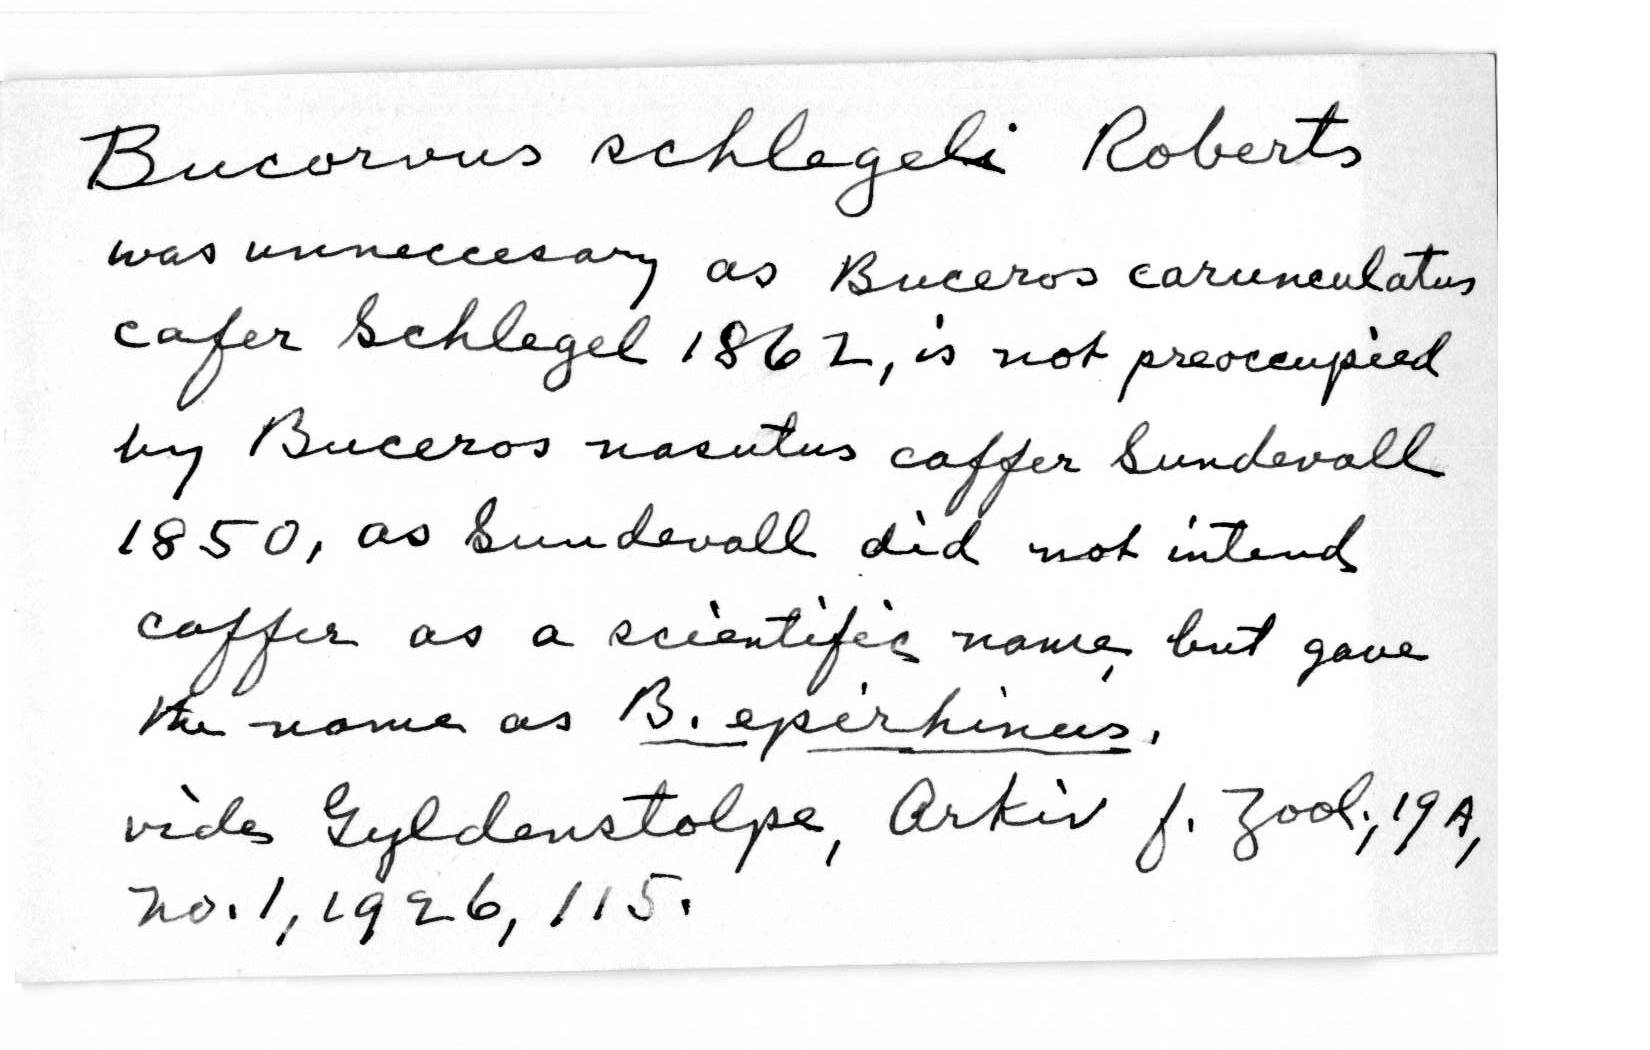 Bucorvus schlegeli Roberts
was unneccesary as Buceros carunculatus
cafer Schlegel 1862, is not preoccupied
by Buceros nasutus caffer Sundevall
1850, as Sundevall did not intend
caffer as a scientific name, but gave
the name as B. epirhinus.
vide Gyldenstolpe, Arkiv f. Zool., 19A,
no. 1, 1926, 115.